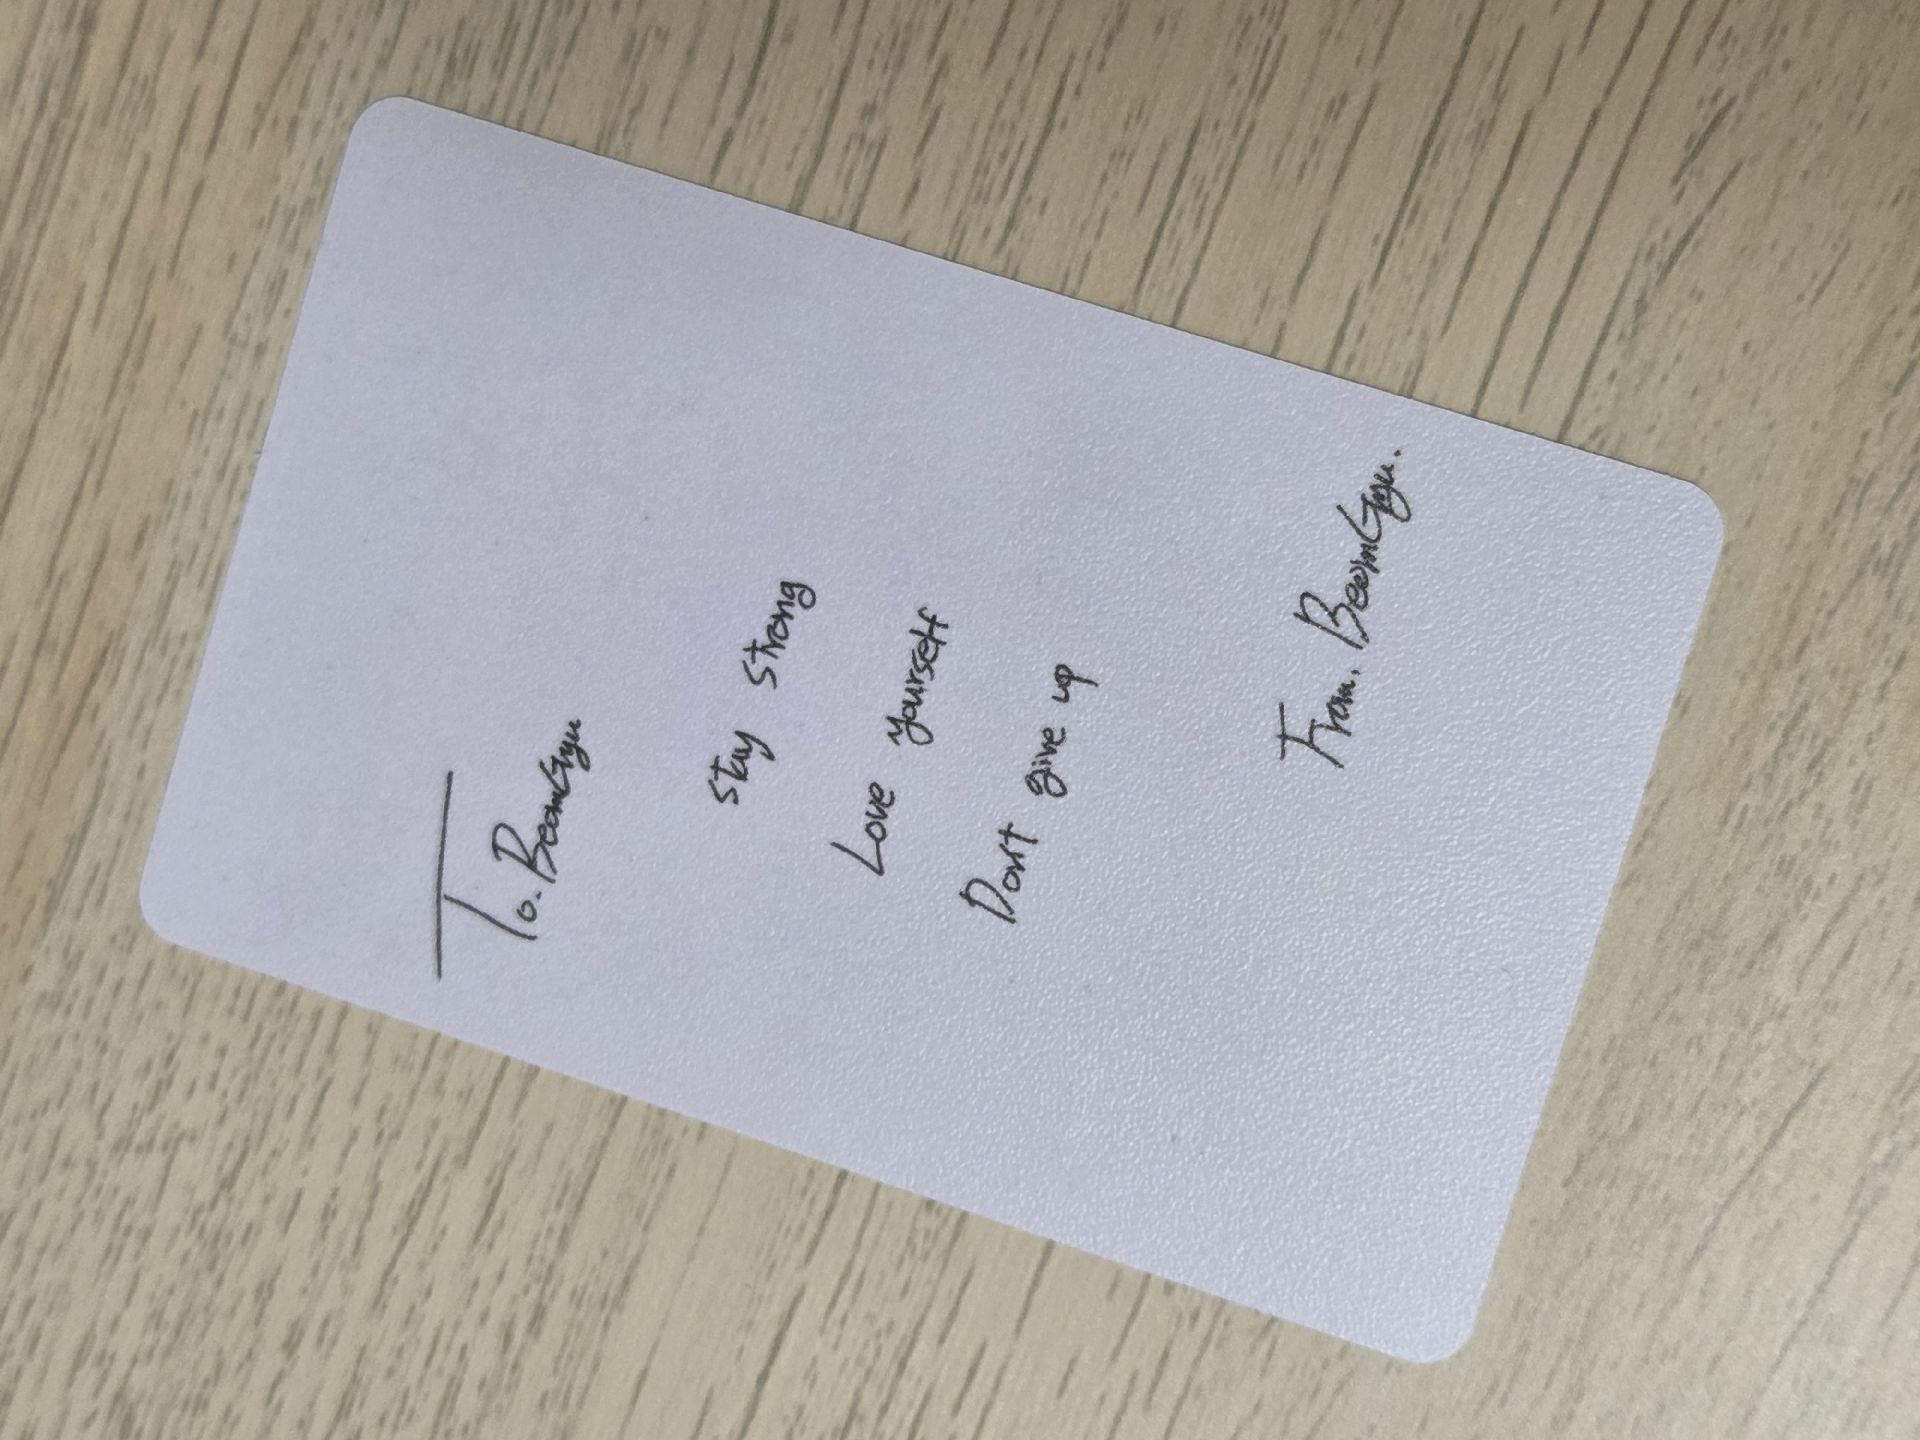 To. BeomGyu
Stay Strong
Love yourself
Don't give up
From. BeomGyu.